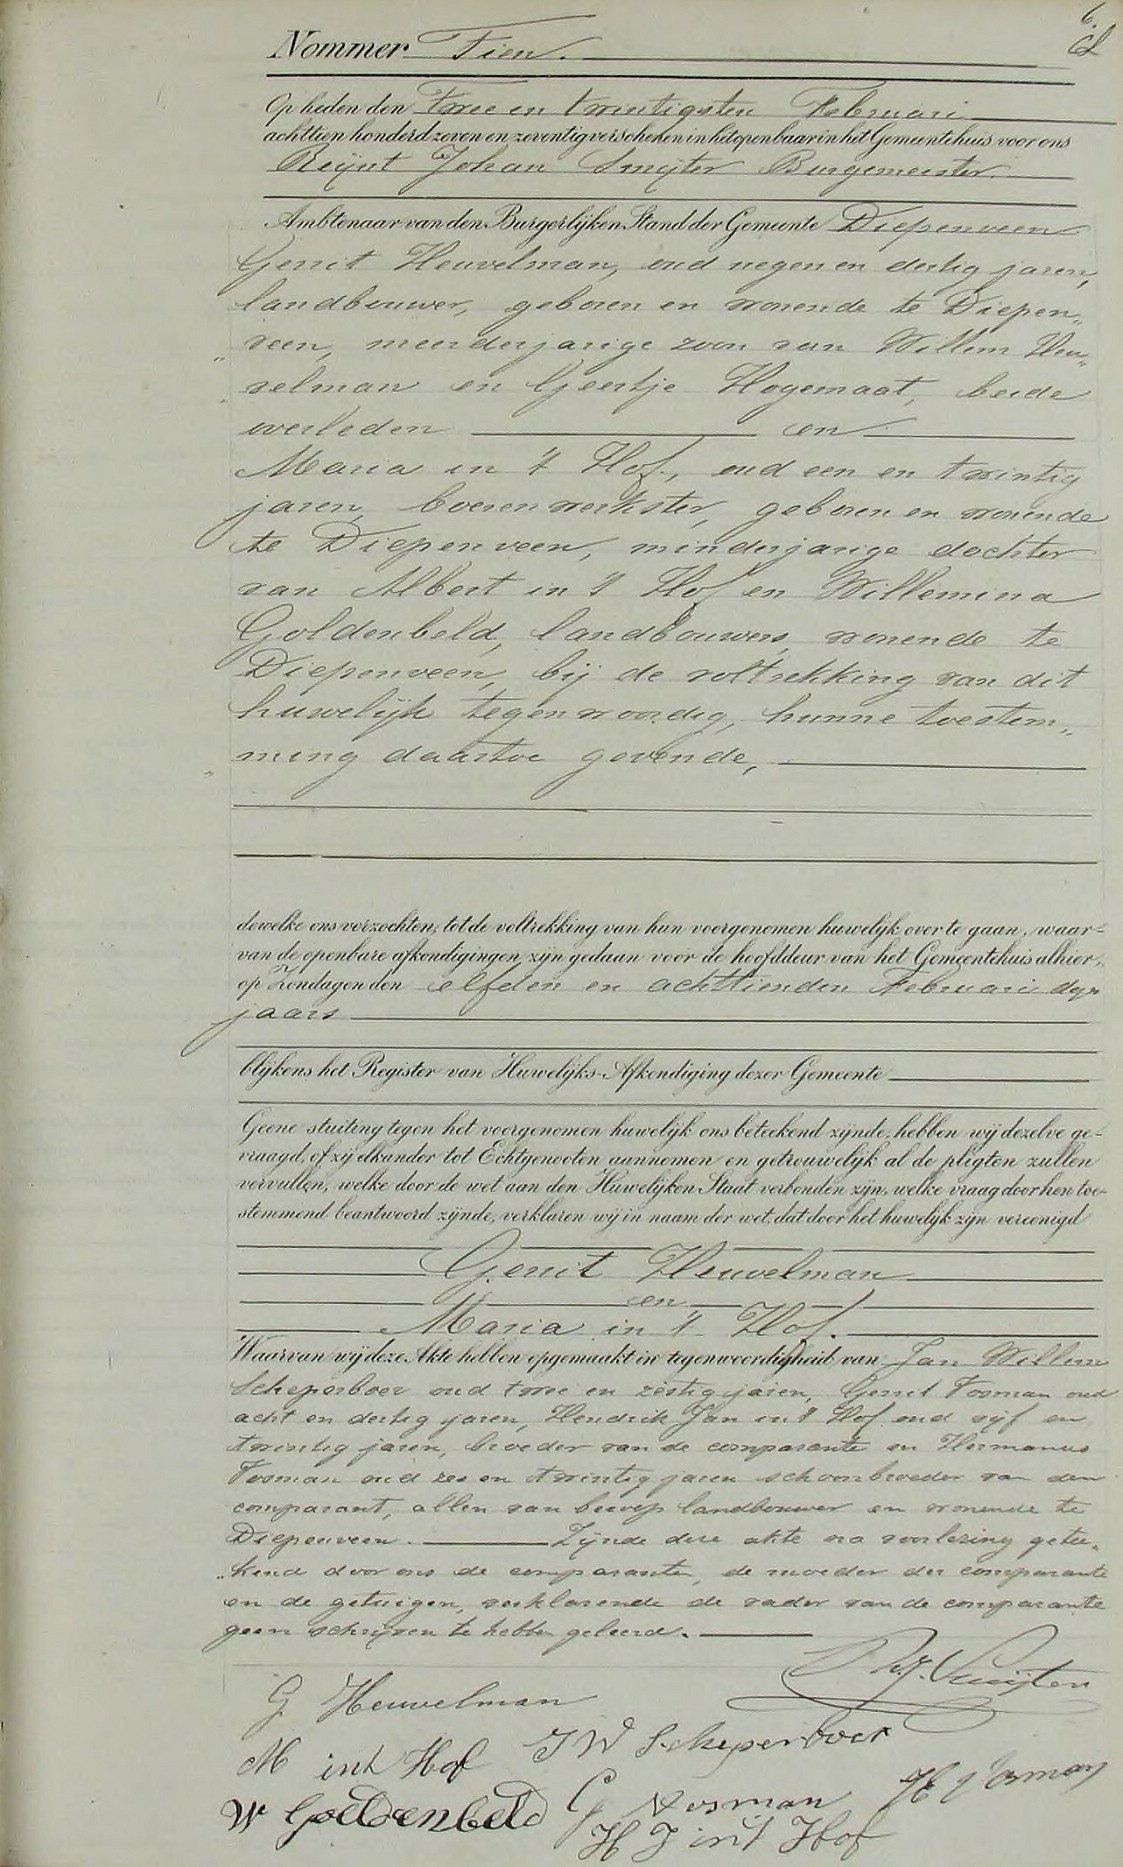 6.
Nommer Tien.
Op heden den Twee en twintigsten Februari
achttien honderd zeven en zeventig verscheken in het openbaar in het Gemeentehuis voor ons
Reijnt Johan Smijter Burgemeester.
Ambtenaar van den Burgerlijken Stand der Gemeente Diepenveen
Gerrit Heuvelman, oud negen en dertig jaren,
landbouwer, geboren en wonende te Diepen„
„veen, meerderjarige zoon van Willem Heu„
„velman en Geertje Hogemaat, beide
overleden en
Maria in 't Hof, oud een en twintig
jaren, boerenwerkster, geboren en wonende
te Diepenveen, minderjarige dochter
van Albert in 't Hof en Willemina
Goldenbeld, landbouwers, wonende te
Diepenveen, bij de voltrekking van dit
huwelijk tegenwoordig, hunne toestem„
„ming daartoe gevende,
dewelke ons verzochten, tot de voltrekking van hun voorgenomen huwelijk over te gaan, waar-
van de openbare afkondigingen zijn gedaan voor de hoofddeur van het Gemeentehuis alhier,
op Zondagen den elfden en achttienden Februari dezes
jaars
blijkens het Register van Huwelijks-Afkondiging dezer Gemeente
Geene stuiting tegen het voorgenomen huwelijk ons beteekend zijnde, hebben wij dezelve ge-
vraagd, of zij elkander tot Echtgenooten aannemen en getrouwelijk al de pligten zullen
vervullen, welke door de wet aan den Huwelijken Staat verbonden zijn, welke vraag door hen toe-
stemmend beantwoord zijnde, verklaren wij in naam der wet, dat door het huwelijk zijn vereenigd
Gerrit Heuvelman
en
Maria in 't Hof.
Waarvan wij deze Akte hebben opgemaakt in tegenwoordigheid van Jan Willem
Scheperboer oud twee en zestig jaren, Gerrit Vosman oud
acht en dertig jaren, Hendrik Jan in 't Hof oud vijf en
twintig jaren, broeder van de comparante en Hermanus
Vosman oud zes en twintig jaren schoonbroeder van den
comparant, allen van beroep landbouwer en wonende te
Diepenveen. Zijnde deze akte na voorlezing getee„
„kend door ons de comparanten, de moeder der comparante
en de getuigen, verklarende de vader van de comparante
geen schrijven te hebben geleerd.
G Heuvelman
M int Hof J W Scheperboer
W Goldenbeld G Vosman H Vosman
H J in't Hof